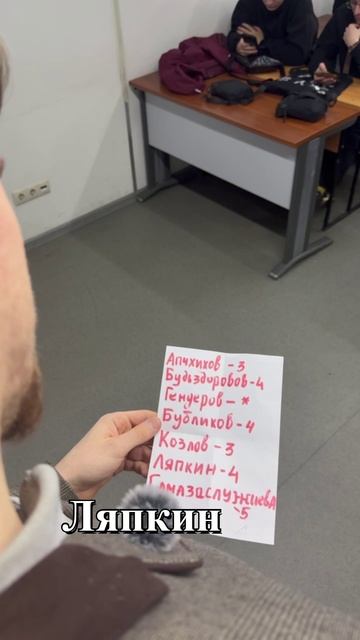 Апчхиков - 3
Будьздоровов - 4
Гендеров - *
Бубликов - 4
Козлов - 3
Ляпкин - 4
Самазаслужиева
- 5
Ляпкин